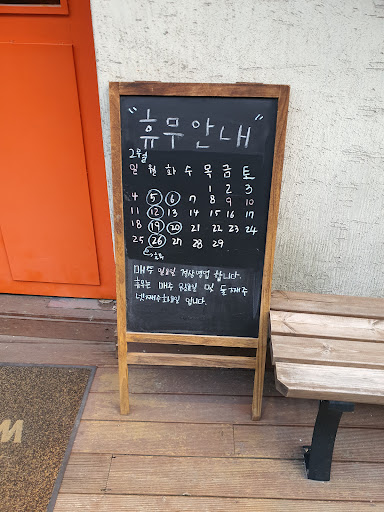 "휴무안내"
2월
일 월 화 수 목 금 토
1 2 3
4 5 6 7 8 9 10
11 12 13 14 15 16 17
18 19 20 21 22 23 24
25 26 27 28 29
휴무
매주 일요일 정상영업 합니다.
휴무는 매주 월요일 및 둘째주
넷째주화요일 입니다.